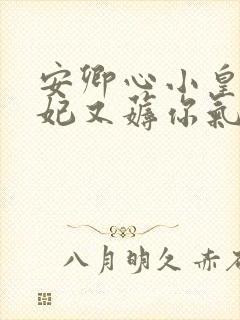 安卿心小皇
妃又薅你氣
八月明久 赤石